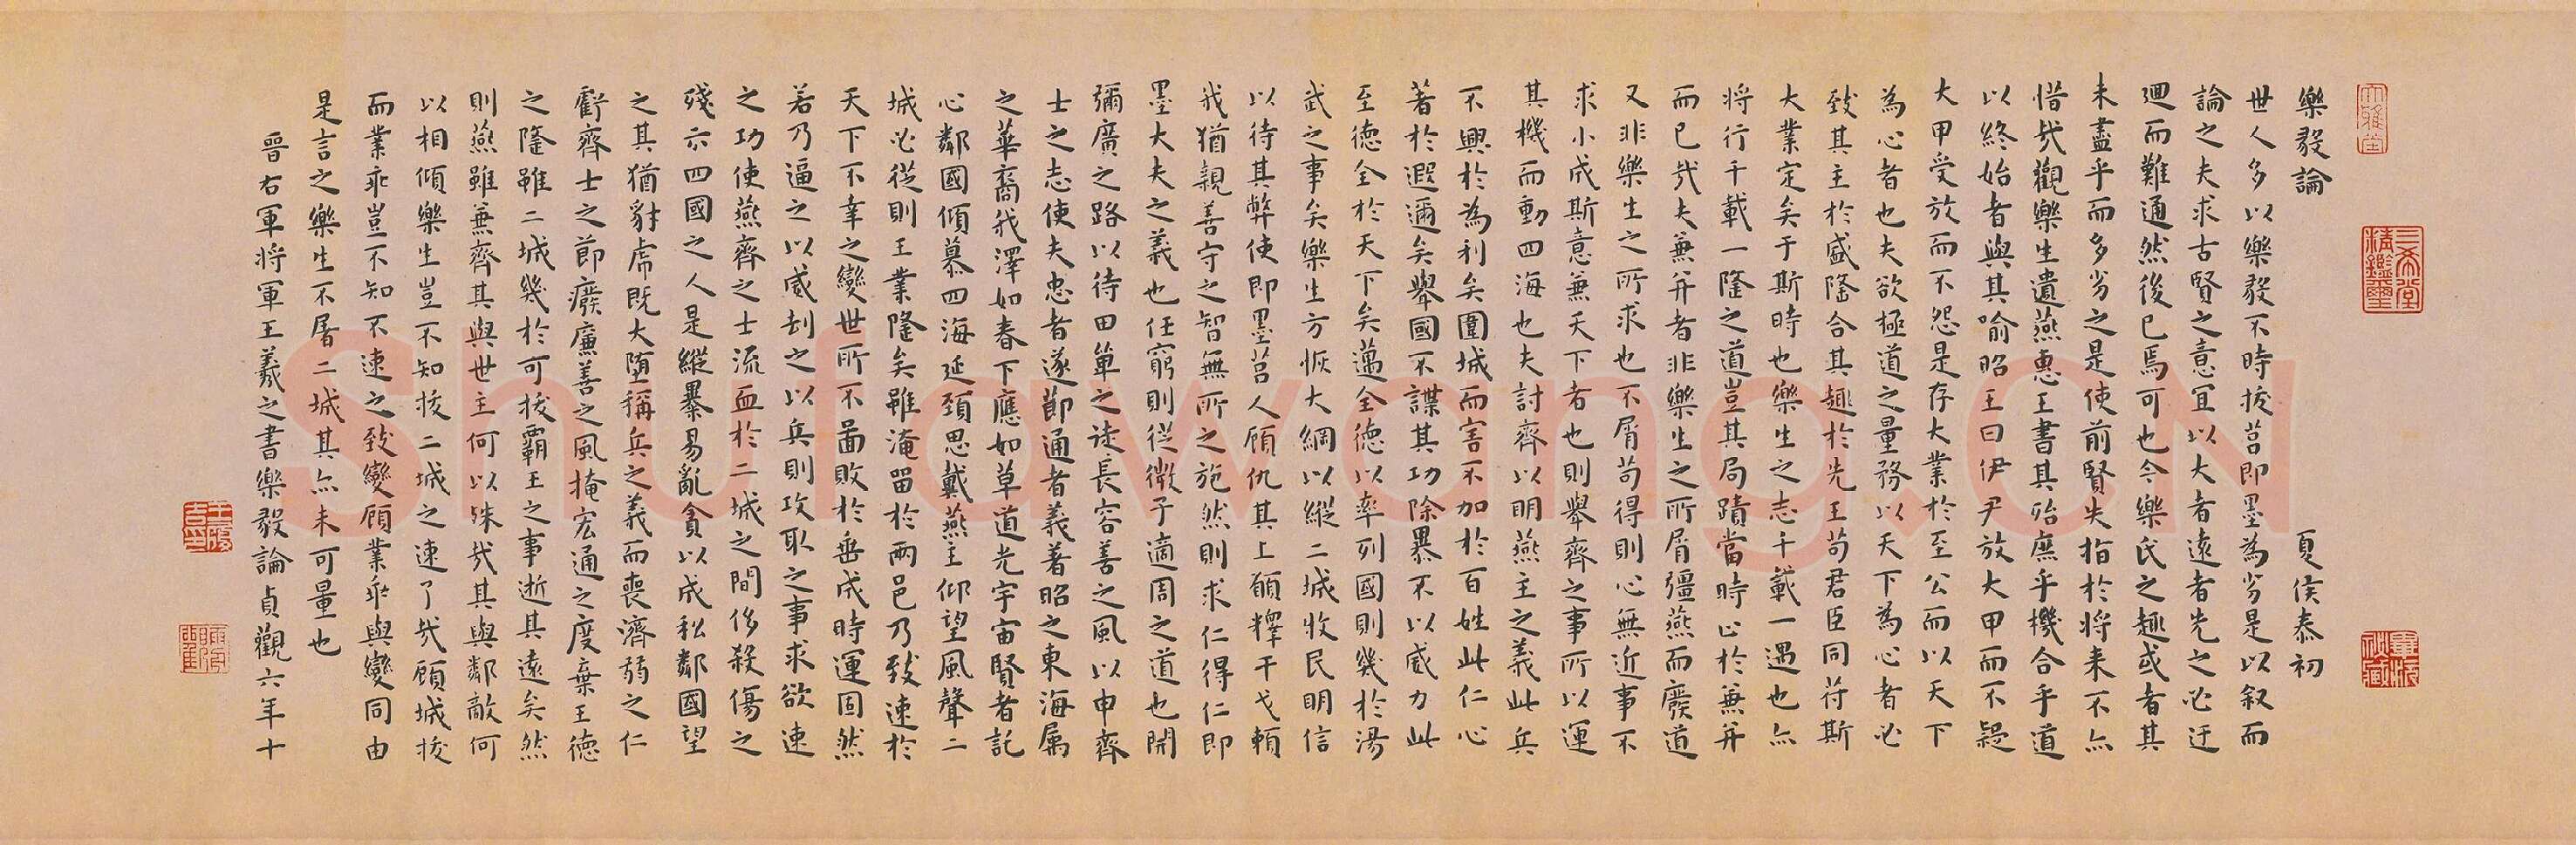 樂毅論 夏侯泰初
世人多以樂毅不時拔莒即墨為劣是以叙而
論之夫求古賢之意宜以大者遠者先之必迂
迴而難通然後已焉可也今樂氏之趣或者其
未盡乎而多劣之是使前賢失指於将来不亦
惜哉觀樂生遺燕惠王書其殆庶乎機合乎道
以終始者與其喻昭王曰伊尹放大甲而不疑
大甲受放而不怨是存大業於至公而以天下
為心者也夫欲極道之量務以天下為心者必
致其主於盛隆合其趣於先王苟君臣同苻斯
大業定矣于斯時也樂生之志千載一遇也亦
将行千載一隆之道豈其局蹟當時止於兼并
而已哉夫兼并者非樂生之所屑彊燕而廢道
又非樂生之所求也不屑苟得則心無近事不
求小成斯意兼天下者也則舉齊之事所以運
其機而動四海也夫討齊以明燕主之義此兵
不興於為利矣圍城而害不加於百姓此仁心
著於遐邇矣舉國不謀其功除暴不以威力此
至徳全於天下矣邁全徳以率列國則幾於湯
武之事矣樂生方恢大綱以縱二城收民明信
以待其弊使即墨莒人顧仇其上願釋干戈賴
我猶親善守之智無所之施然則求仁得仁即
墨大夫之義也任窮則從微子適周之道也開
彌廣之路以待田單之徒長容善之風以申齊
士之志使夫忠者遂節通者義著昭之東海屬
之華裔我澤如春下應如草道光宇宙賢者託
心鄰國傾慕四海延頸思戴燕主仰望風聲二
城必從則王業隆矣雖淹留於兩邑乃致速於
天下不幸之變世所不圖敗於垂成時運固然
若乃逼之以威刧之以兵則攻取之事求欲速
之功使燕齊之士流血於二城之間侈殺傷之
殘示四國之人是縱暴易亂貪以成私鄰國望
之其猶豺虎既大堕稱兵之義而喪濟弱之仁
虧齊士之節癈廉善之風掩宏通之度棄王徳
之隆雖二城幾於可拔霸王之事逝其遠矣然
則燕雖兼齊其與世主何以殊哉其與鄰敵何
以相傾樂生豈不知拔二城之速了哉顧城拔
而業乖豈不知不速之致變顧業乖與變同由
是言之樂生不屠二城其亦未可量也
晉右軍将軍王羲之書樂毅論貞觀六年十
shufawang.CN